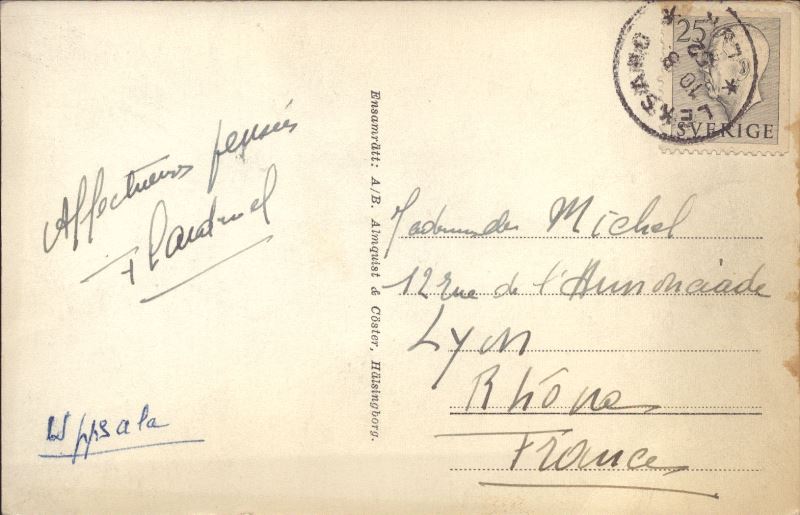 Affectueuses pensées
Uppsala
Ensamrätt: A/B. Almquist & Cöster, Hälsingborg.
25
SVERIGE
LEKSAND
10 8
52
Michel
12 rue de l'Annonciade
Lyon
Rhône
France